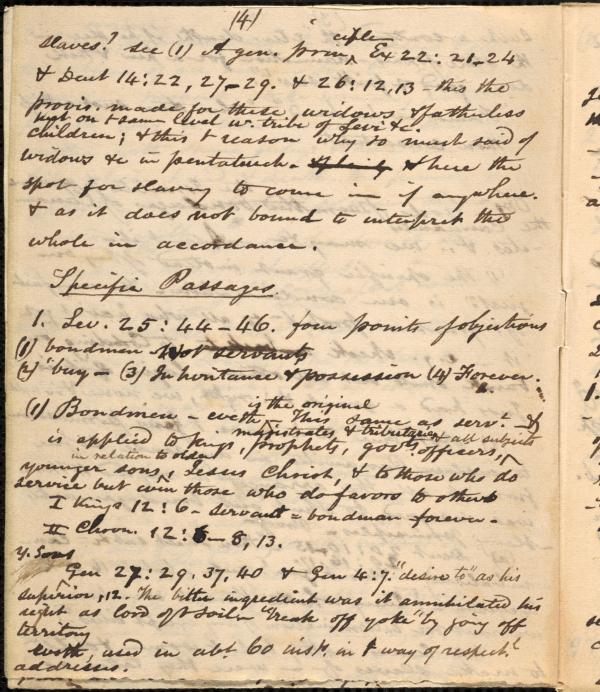 (4)
slaves? see (1) A gen. principle Ex 22: 21-24
& Deut 14:22, 27-29. & 26:12,13 - this the
provis. made for these, widows & fatherless
just on t same level w. tribe of Levi &c.
children; & this t reason why so much said of
widows &c in pentateuch. & here the
spot for slavery to come in if anywhere.
& as it does not bound to interpret the
whole in accordance.
Specific Passages.
1. Lev. 25:44-46. four points of objections
(1) bondmen not servants
(2) "buy - (3) Inheritance & possession (4) Forever.
is the original
(1) Bondmen - eveth This same as servt. &
magistrates & tributaries & all subjects
is applied to kings, prophets, govt. officers,
in relation to older
younger sons, Jesus Christ, & to those who do
service but even those who do favors to others
I Kings 12:6 - servant = bondman forever.
II Chron. 12: - 8, 13.
y. Sons
Gen 27:29. 37, 40 & Gen 4:7. "desire to" as his
superior, 12. The bitter ingredient was it annihilated his
right as lord of t soil. "Break off yoke" by going off
territory
eveth, used in abt 60 inst. in t way of respect.
addresses.